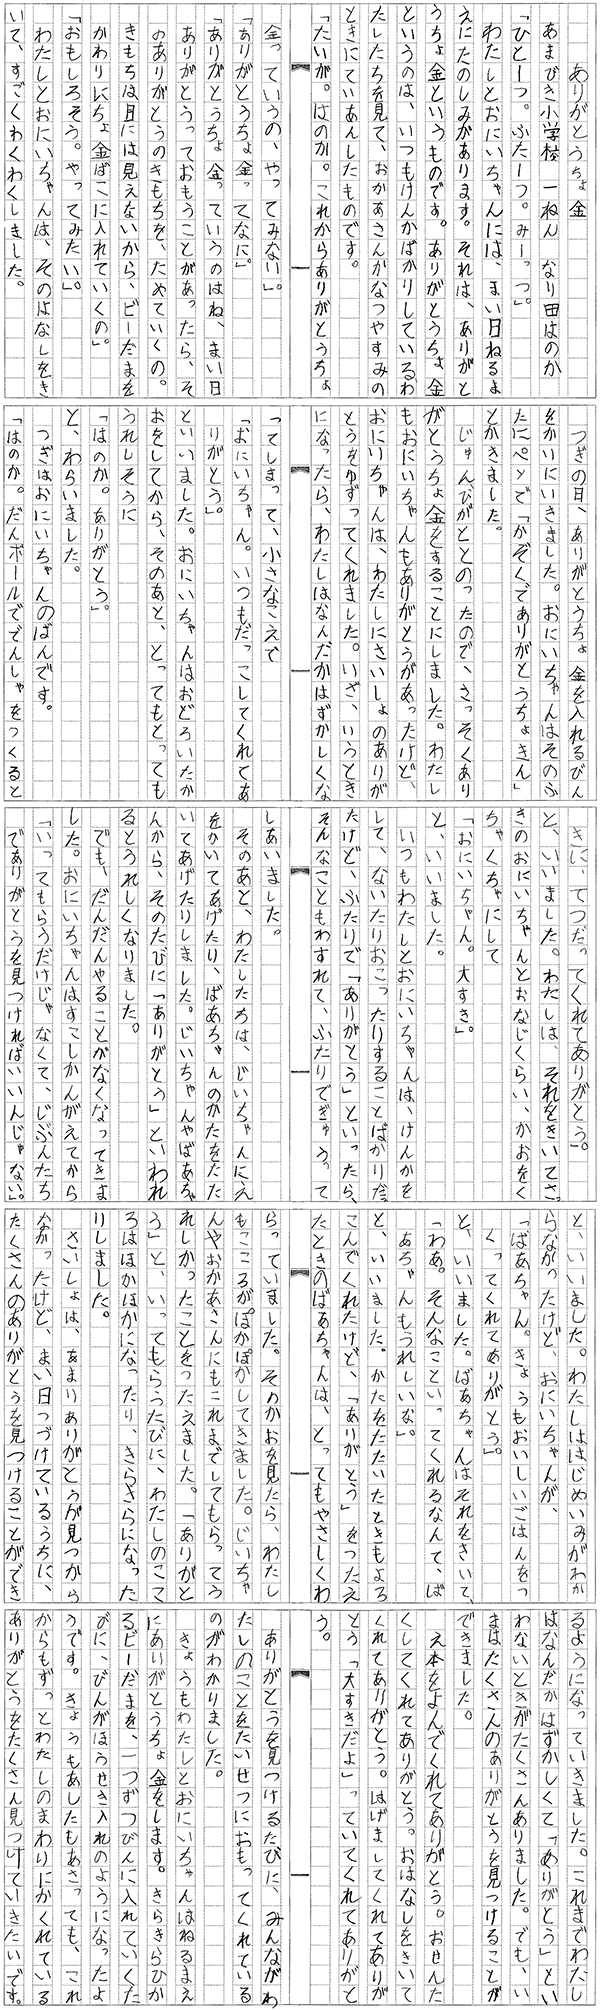 ありがとうちょ金
あまびき小学校　一ねん　なり田はのか
「ひとーつ。ふたーつ。みーっつ」
わたしとおにいちゃんには、まい日ねるま
えにたのしみがあります。それは、ありがと
うちょ金というものです。ありがとうちょ金
というのは、いつもけんかばかりしているわ
たしたちを見て、おかあさんがなつやすみの
ときにていあんしたものです。
「たいが。はのか。これからありがとうちょ
金っていうの、やってみない」。
「ありがとうちょ金ってなに」。
「ありがとうちょ金っていうのはね、まい日
ありがとうっておもうことがあったら、そ
のありがとうのきもちを、ためていくの。
きもちは目には見えないから、ビーだまを
かわりにちょ金ばこに入れていくの」。
「おもしろそう。やってみたい」。
わたしとおにいちゃんは、そのはなしをき
いて、すごくわくわくしました。
つぎの日、ありがとうちょ金を入れるびん
をかいにいきました。おにいちゃんはそのふ
たにペンで「かぞくでありがとうちょきん」
とかきました。
じゅんびがととのったので、さっそくあり
がとうちょ金をすることにしました。わたし
もおにいちゃんもありがとうがあったけど、
おにいちゃんは、わたしにさいしょのありが
とうをゆずってくれました。いざ、いうとき
になったら、わたしはなんだかはずかしくな
ってしまって、小さなこえで
「おにいちゃん。いつもだっこしてくれてあ
りがとう」。
といいました。おにいちゃんはおどろいたか
おをしてから、そのあと、とってもとっても
うれしそうに
「はのか。ありがとう」。
と、わらいました。
つぎはおにいちゃんのばんです。
「はのか。だんボールででんしゃをつくると
きに、てつだってくれてありがとう」。
と、いいました。わたしは、それをきいてさっ
きのおにいちゃんとおなじくらい、かおをく
ちゃくちゃにして
「おにいちゃん。大すき」。
と、いいました。
いつもわたしとおにいちゃんは、けんかを
して、ないたりおこったりすることばかりだっ
たけど、ふたりで「ありがとう」といったら、
そんなこともわすれて、ふたりでぎゅうって
しあいました。
そのあと、わたしたちは、じいちゃんにえ
をかいてあげたり、ばあちゃんのかたをたた
いてあげたりしました。じいちゃんやばあちゃ
んから、そのたびに「ありがとう」といわれ
るとうれしくなりました。
でも、だんだんやることがなくなってきま
した。おにいちゃんはすこしかんがえてから
「いってもらうだけじゃなくて、じぶんたち
でありがとうを見つければいいんじゃない」。
と、いいました。わたしははじめいみがわか
らなかったけど、おにいちゃんが、
「ばあちゃん。きょうもおいしいごはんをつ
くってくれてありがとう」。
と、いいました。ばあちゃんはそれをきいて、
「わあ。そんなこといってくれるなんて、ば
あちゃんもうれしいな」。
と、いいました。かたをたたいたときもよろ
こんでくれたけど、「ありがとう」をつたえ
たときのばあちゃんは、とってもやさしくわ
らっていました。そのかおを見たら、わたし
もこころがぽかぽかしてきました。じいちゃ
んやおかあさんにもこれまでしてもらってう
れしかったことをつたえました。「ありがと
う」と、いってもらうたびに、わたしのここ
ろはほかほかになったり、きらきらになった
りしました。
さいしょは、あまりありがとうが見つから
なかったけど、まい日つづけているうちに、
たくさんのありがとうを見つけることができ
るようになっていきました。これまでわたし
はなんだかはずかしくて「ありがとう」とい
わないときがたくさんありました。でも、い
まはたくさんのありがとうを見つけることが
できました。
え本をよんでくれてありがとう。おせんた
くしてくれてありがとう。おはなしをきいて
くれてありがとう。はげましてくれてありが
とう「大すきだよ」っていてくれてありがと
う。
ありがとうを見つけるたびに、みんながわ
たしのことをたいせつにおもってくれている
のがわかりました。
きょうもわたしとおにいちゃんはねるまえ
にありがとうちょ金をします。きらきらひか
るビーだまを、一つずつびんに入れていくた
びに、びんがほうせき入れのようになったよ
うです。きょうもあしたもあさっても、これ
からもずっとわたしのまわりにかくれている
ありがとうをたくさん見つけていきたいです。